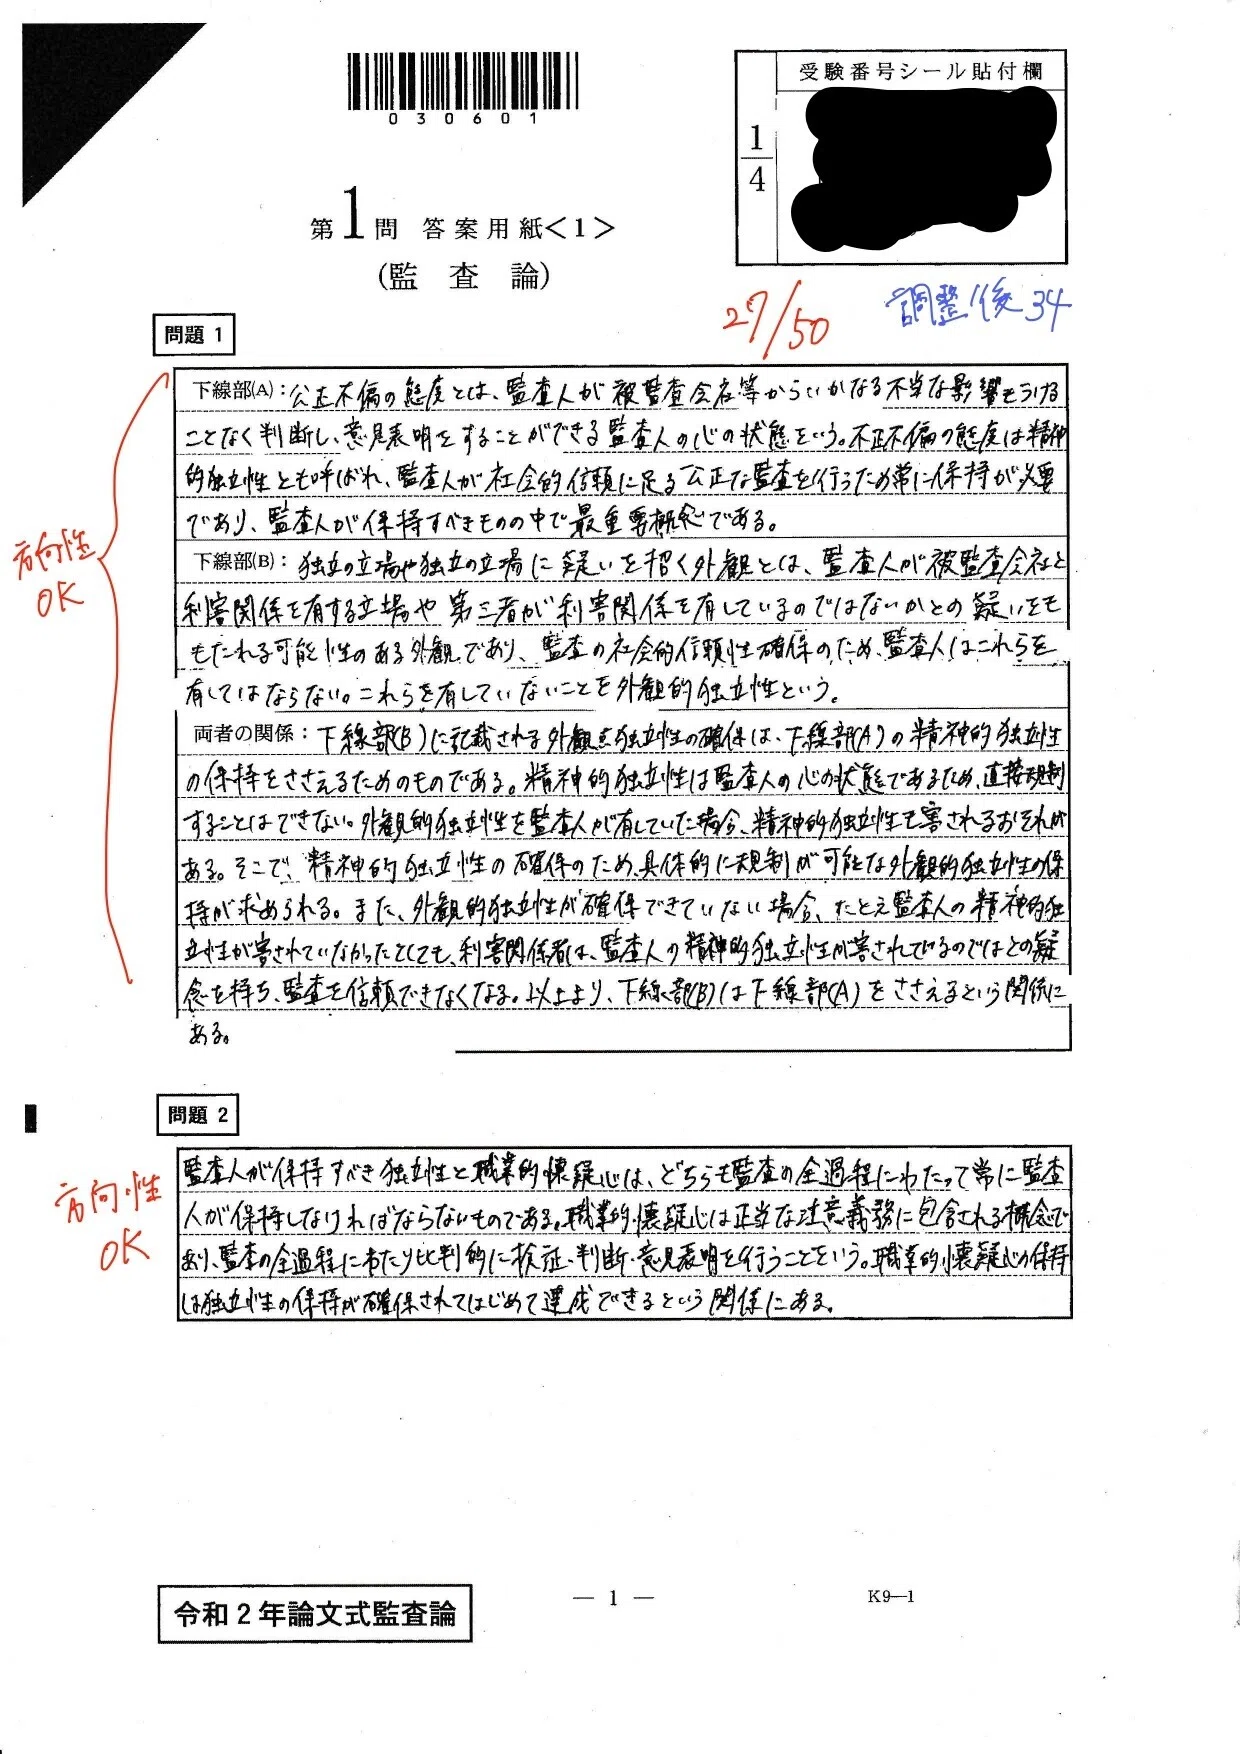 030601
受験番号シール貼付欄
1
4
第1問 答案用紙<1>
(監 査 論)
27/50
調整後34
問題 1
下線部(A):公正不偏の態度とは、監査人が被監査会社等からいかなる不当な影響もうける
ことなく判断し、意見表明をすることができる監査人の心の状態をいう。不正不偏の態度は精神
的独立性とも呼ばれ、監査人が社会的信頼に足る公正な監査を行うため常に保持が必要
であり、監査人が保持すべきものの中で最重要概念である。
下線部(B):独立の立場や独立の立場に疑いを招く外観とは、監査人が被監査会社と
利害関係を有する立場や第三者が利害関係を有しているのではないかとの疑いをも
もたれる可能性のある外観であり、監査の社会的信頼性確保のため、監査人はこれらを
有してはならない。これらを有していないことを外観的独立性という。
両者の関係:下線部(B)に記載される外観的独立性の確保は、下線部(A)の精神的独立性
の保持をささえるためのものである。精神的独立性は監査人の心の状態であるため、直接規制
することはできない。外観的独立性を監査人が有していた場合、精神的独立性も害されるおそれが
ある。そこで、精神的独立性の確保のため、具体的に規制が可能な外観的独立性の保
持が求められる。また、外観的独立性が確保できていない場合、たとえ監査人の精神的独
立性が害されていなかったとしても、利害関係者は、監査人の精神的独立性が害されているのではとの疑
念を持ち、監査を信頼できなくなる。以上より、下線部(B)は下線部(A)をささえるという関係に
ある。
方向性
OK
問題 2
監査人が保持すべき独立性と職業的懐疑心は、どちらも監査の全過程にわたって常に監査
人が保持しなければならないものである。職業的懐疑心は正当な注意義務に包含される概念で
あり、監査の全過程にわたり批判的に検証・判断・意見表明を行うことをいう。職業的懐疑心の保持
は独立性の保持が確保されてはじめて達成できるという関係にある。
方向性
OK
令和2年論文式監査論
— 1 —
K9—1